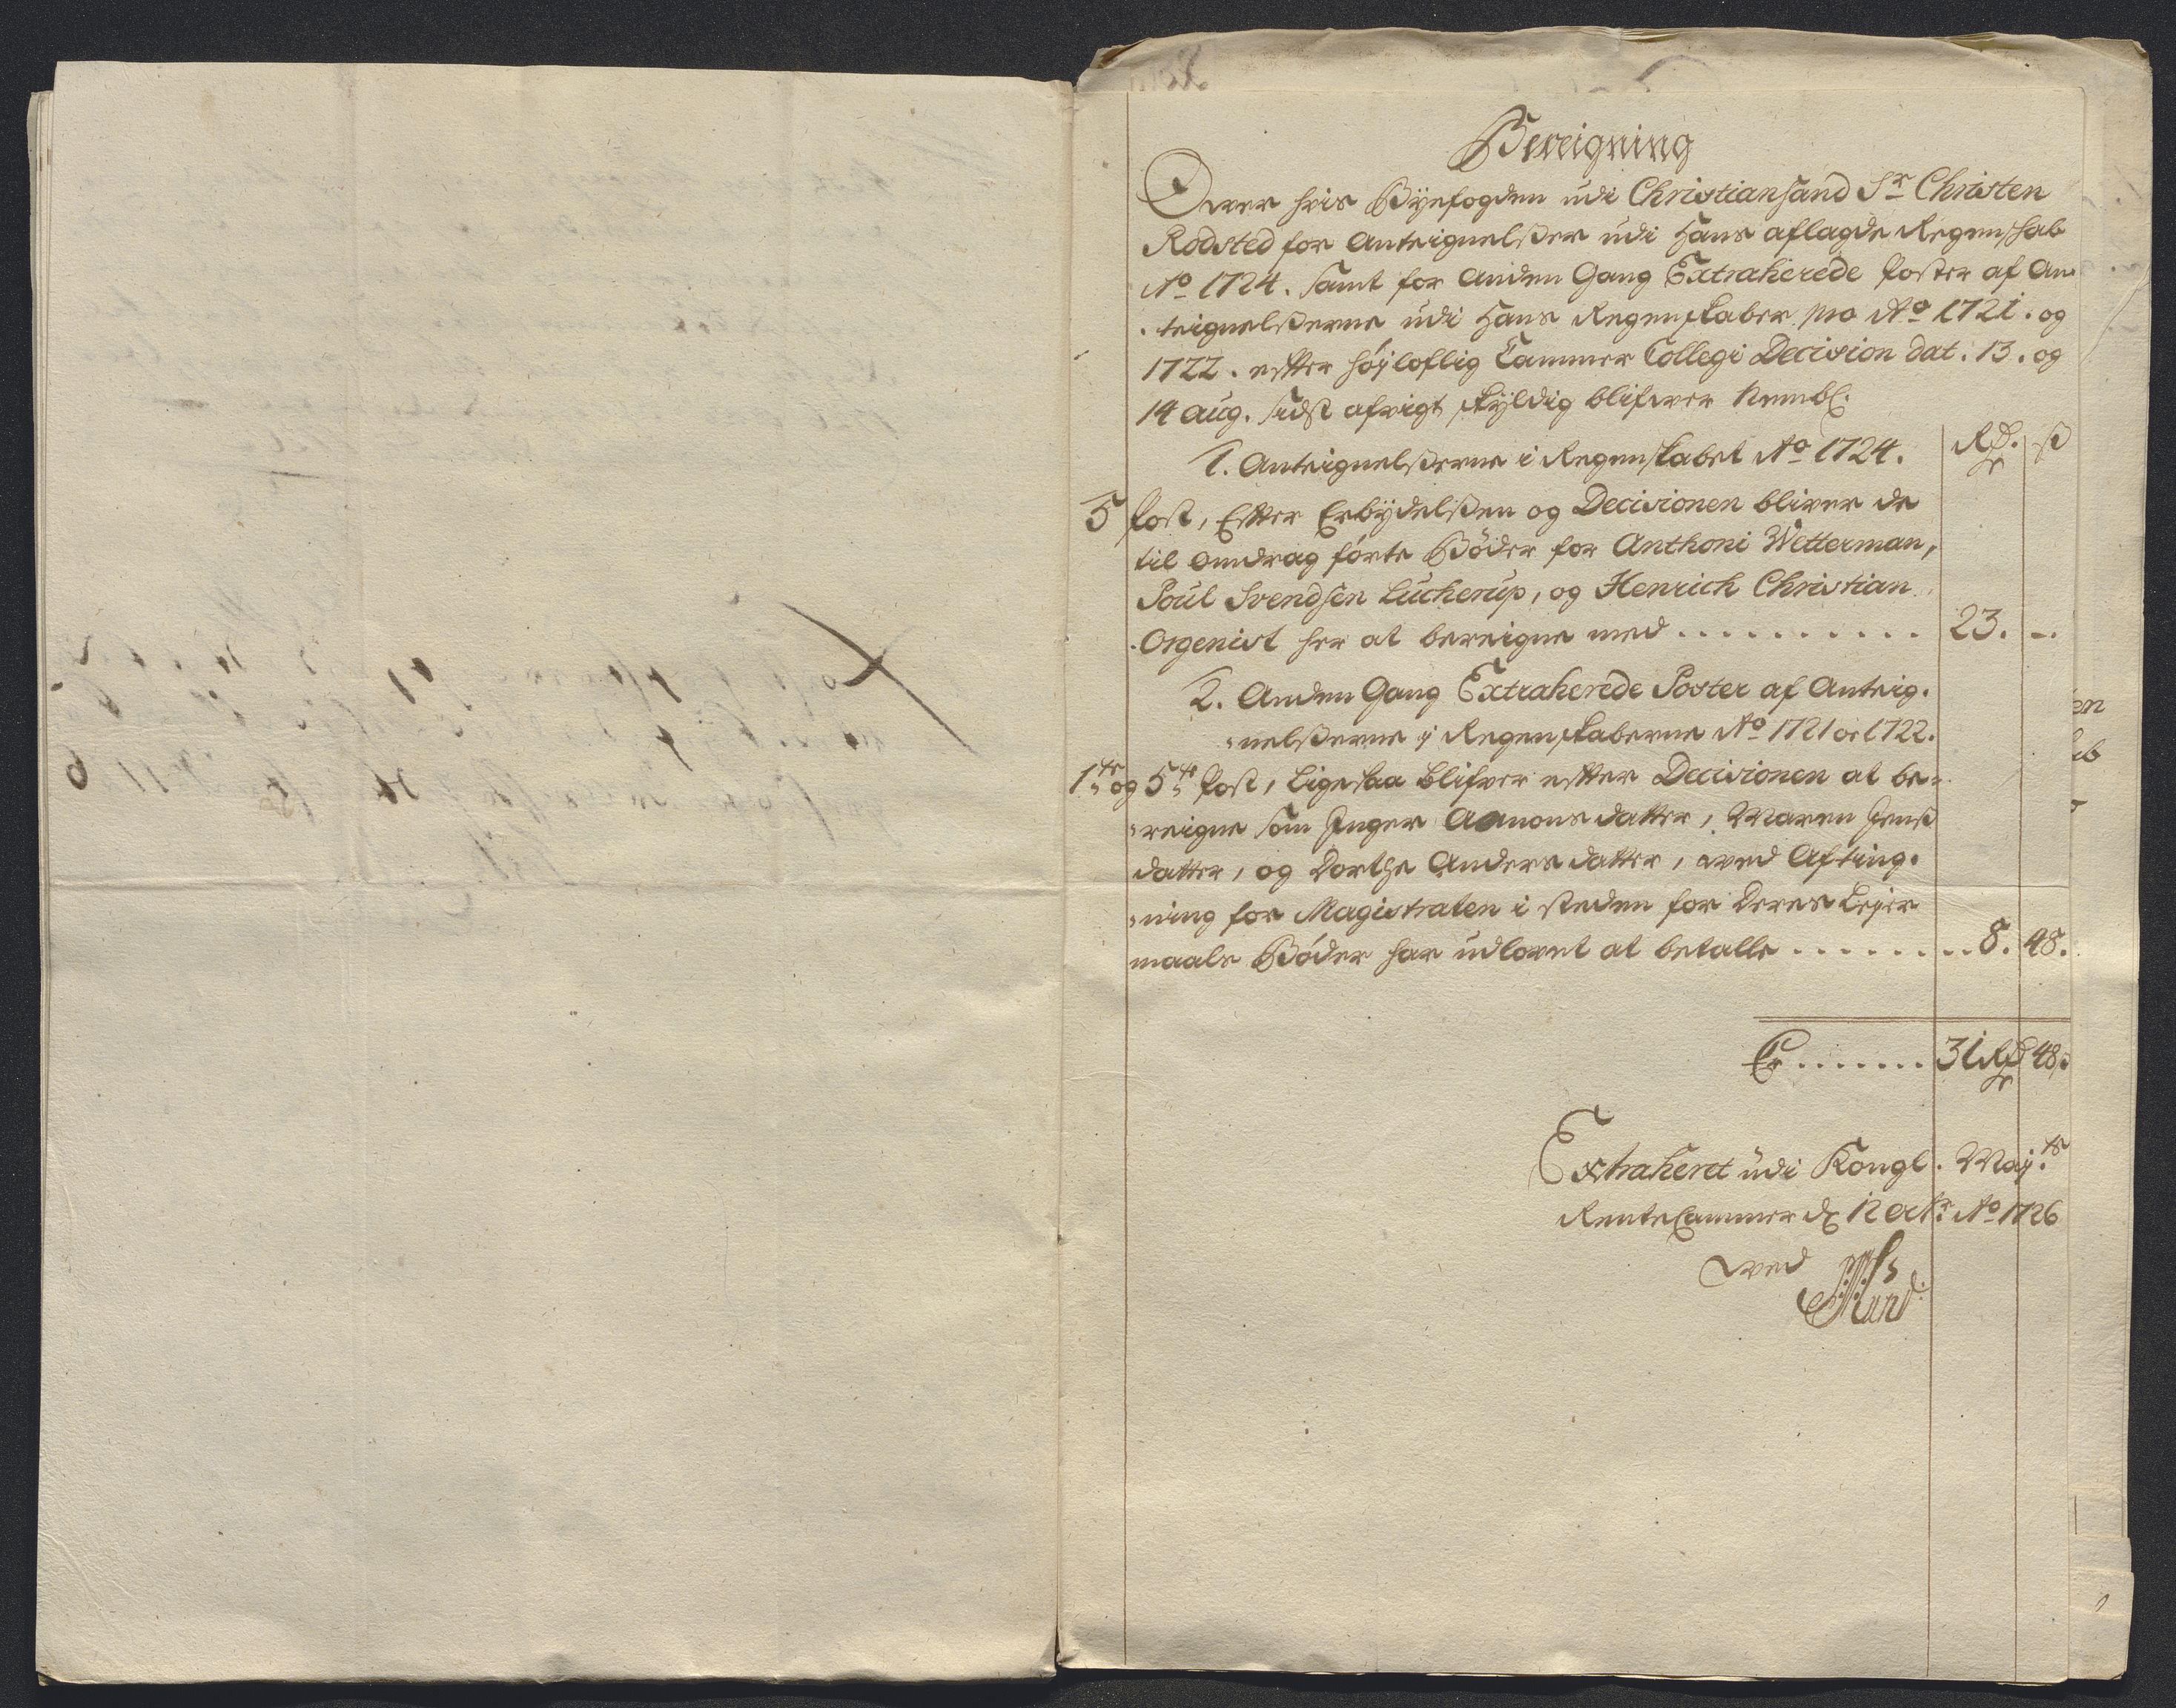 Bereigning
Over hvis Byefogden udi Christiansand Sr Christen
Rodsted for Anteignelßer udi hans aflagde Regenskab
Ao 1724. samt for Anden Gang Extraherede Poster af An-
teignelßerne udi hans Regenskaber pro Ao 1721. og
1722. efter höjloflig Cammer Collegi Decision dat. 13. og
14 aug. sidst afvigt skyldig blifver Nembl.
1. Anteignelßerne i Regenskabet Ao 1724. Rdr. ß
5 Post, Efter Erbydelßen og Decisionen bliver de
til omdrag förte Böder for Anthoni Wetterman,
Poul Svendsen Lucherup, og Henrich Christian
Orgenist her at bereigne med .......... 23. -.
2. Anden Gang Extraherede Poster af Anteig-
nelßerne i Regenskaberne Ao 1721 oc 1722.
1te og 5te Post, Ligesaa blifver efter Decisionen at be-
reigne som Inger Aamons datter, Maren Jenß
datter, og Dorthe Anders datter, ved Afting-
ning for Magistraten i steden for deres Leier
maals Böder har udlovet at betalle ......... 8. 48.
Er ....... 31 Rdr 48 ß
Extraheret udi Kongl. Maj:ts
RenteCammer d 12 octr: Ao 1726
ved